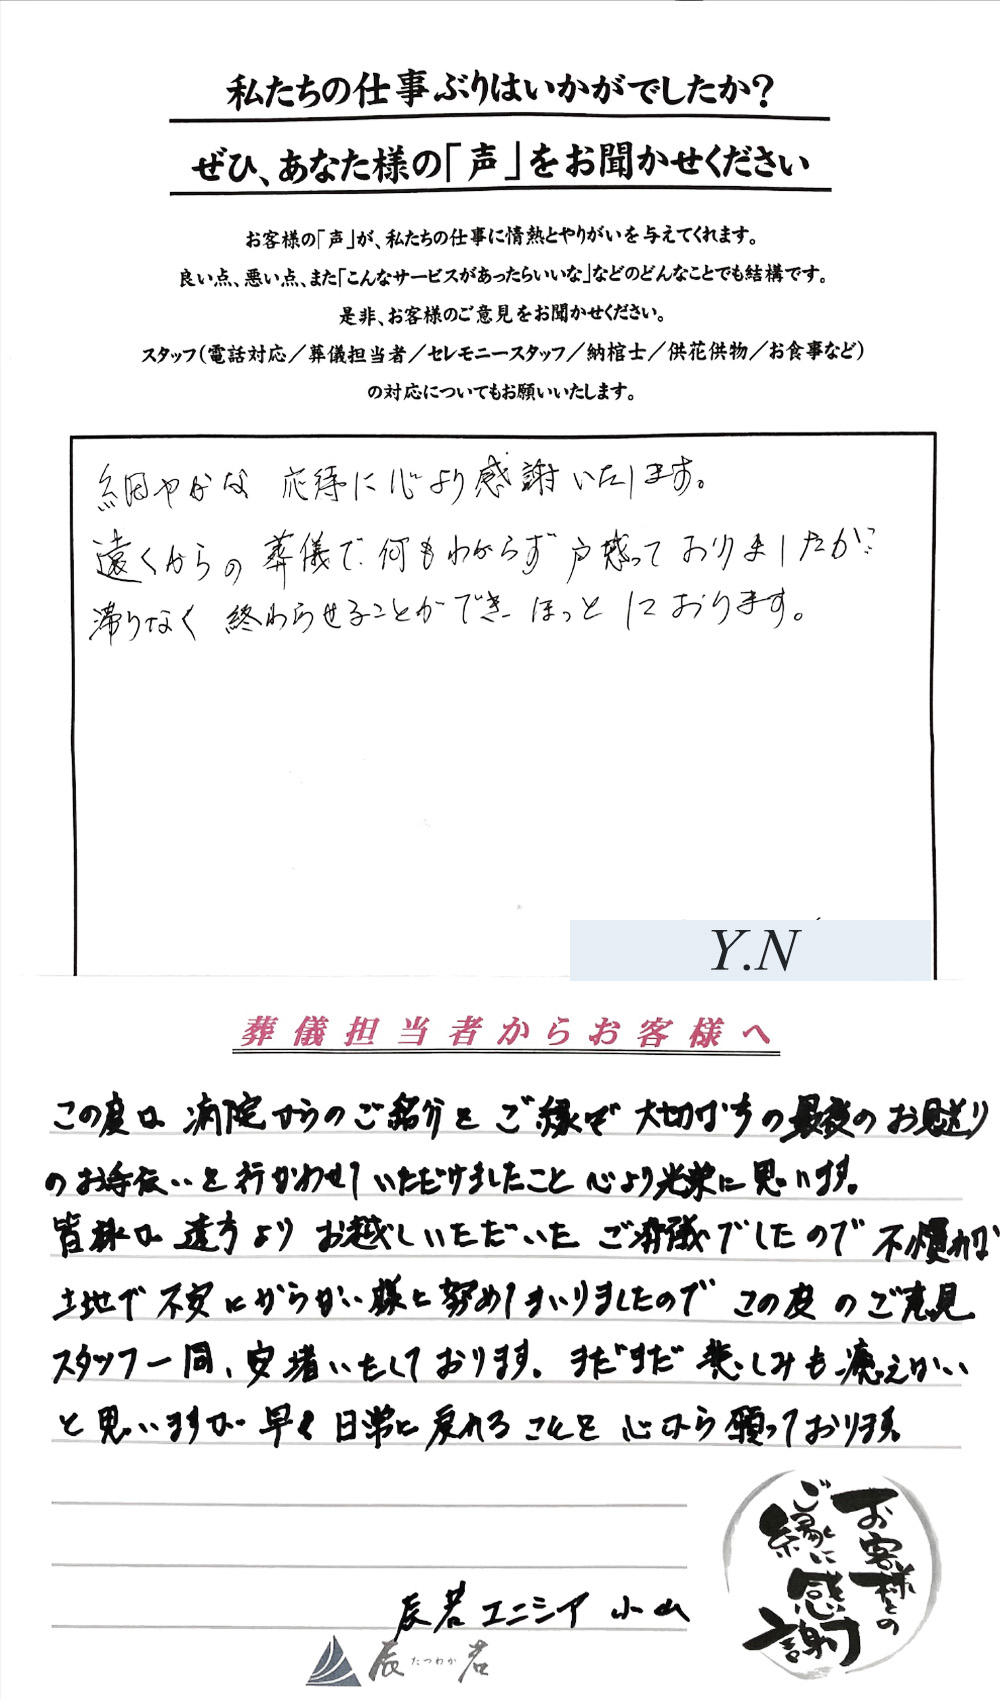 私たちの仕事ぶりはいかがでしたか?
ぜひ、あなた様の「声」をお聞かせください
お客様の「声」が、私たちの仕事に情熱とやりがいを与えてくれます。
良い点、悪い点、また「こんなサービスがあったらいいな」などのどんなことでも結構です。
是非、お客様のご意見をお聞かせください。
スタッフ(電話対応/葬儀担当者/セレモニースタッフ/納棺士/供花供物/お食事など)
の対応についてもお願いいたします。
細やかな 応待に心より感謝いたします。
遠くからの 葬儀で 何もわからず 戸惑って おりましたが
滞りなく 終わらせることができ ほっと しております。
Y.N
葬儀担当者からお客様へ
この度は 病院からのご紹介と ご縁で 大切な方の最後のお見送り
のお手伝いを行なわせていただけましたこと 心より光栄に思います。
皆様は 遠方より お越しいただいた ご葬儀でしたので 不慣れな
土地で 不安にならない様に努めてまいりましたので この度 のご意見
スタッフ一同、安堵いたしております。まだまだ 悲しみも癒えない
と思いますが 早く 日常に戻れる ことを 心から 願っております。
辰若エニシア 小山
辰若
たつわか
お客様との
ご縁に
感謝